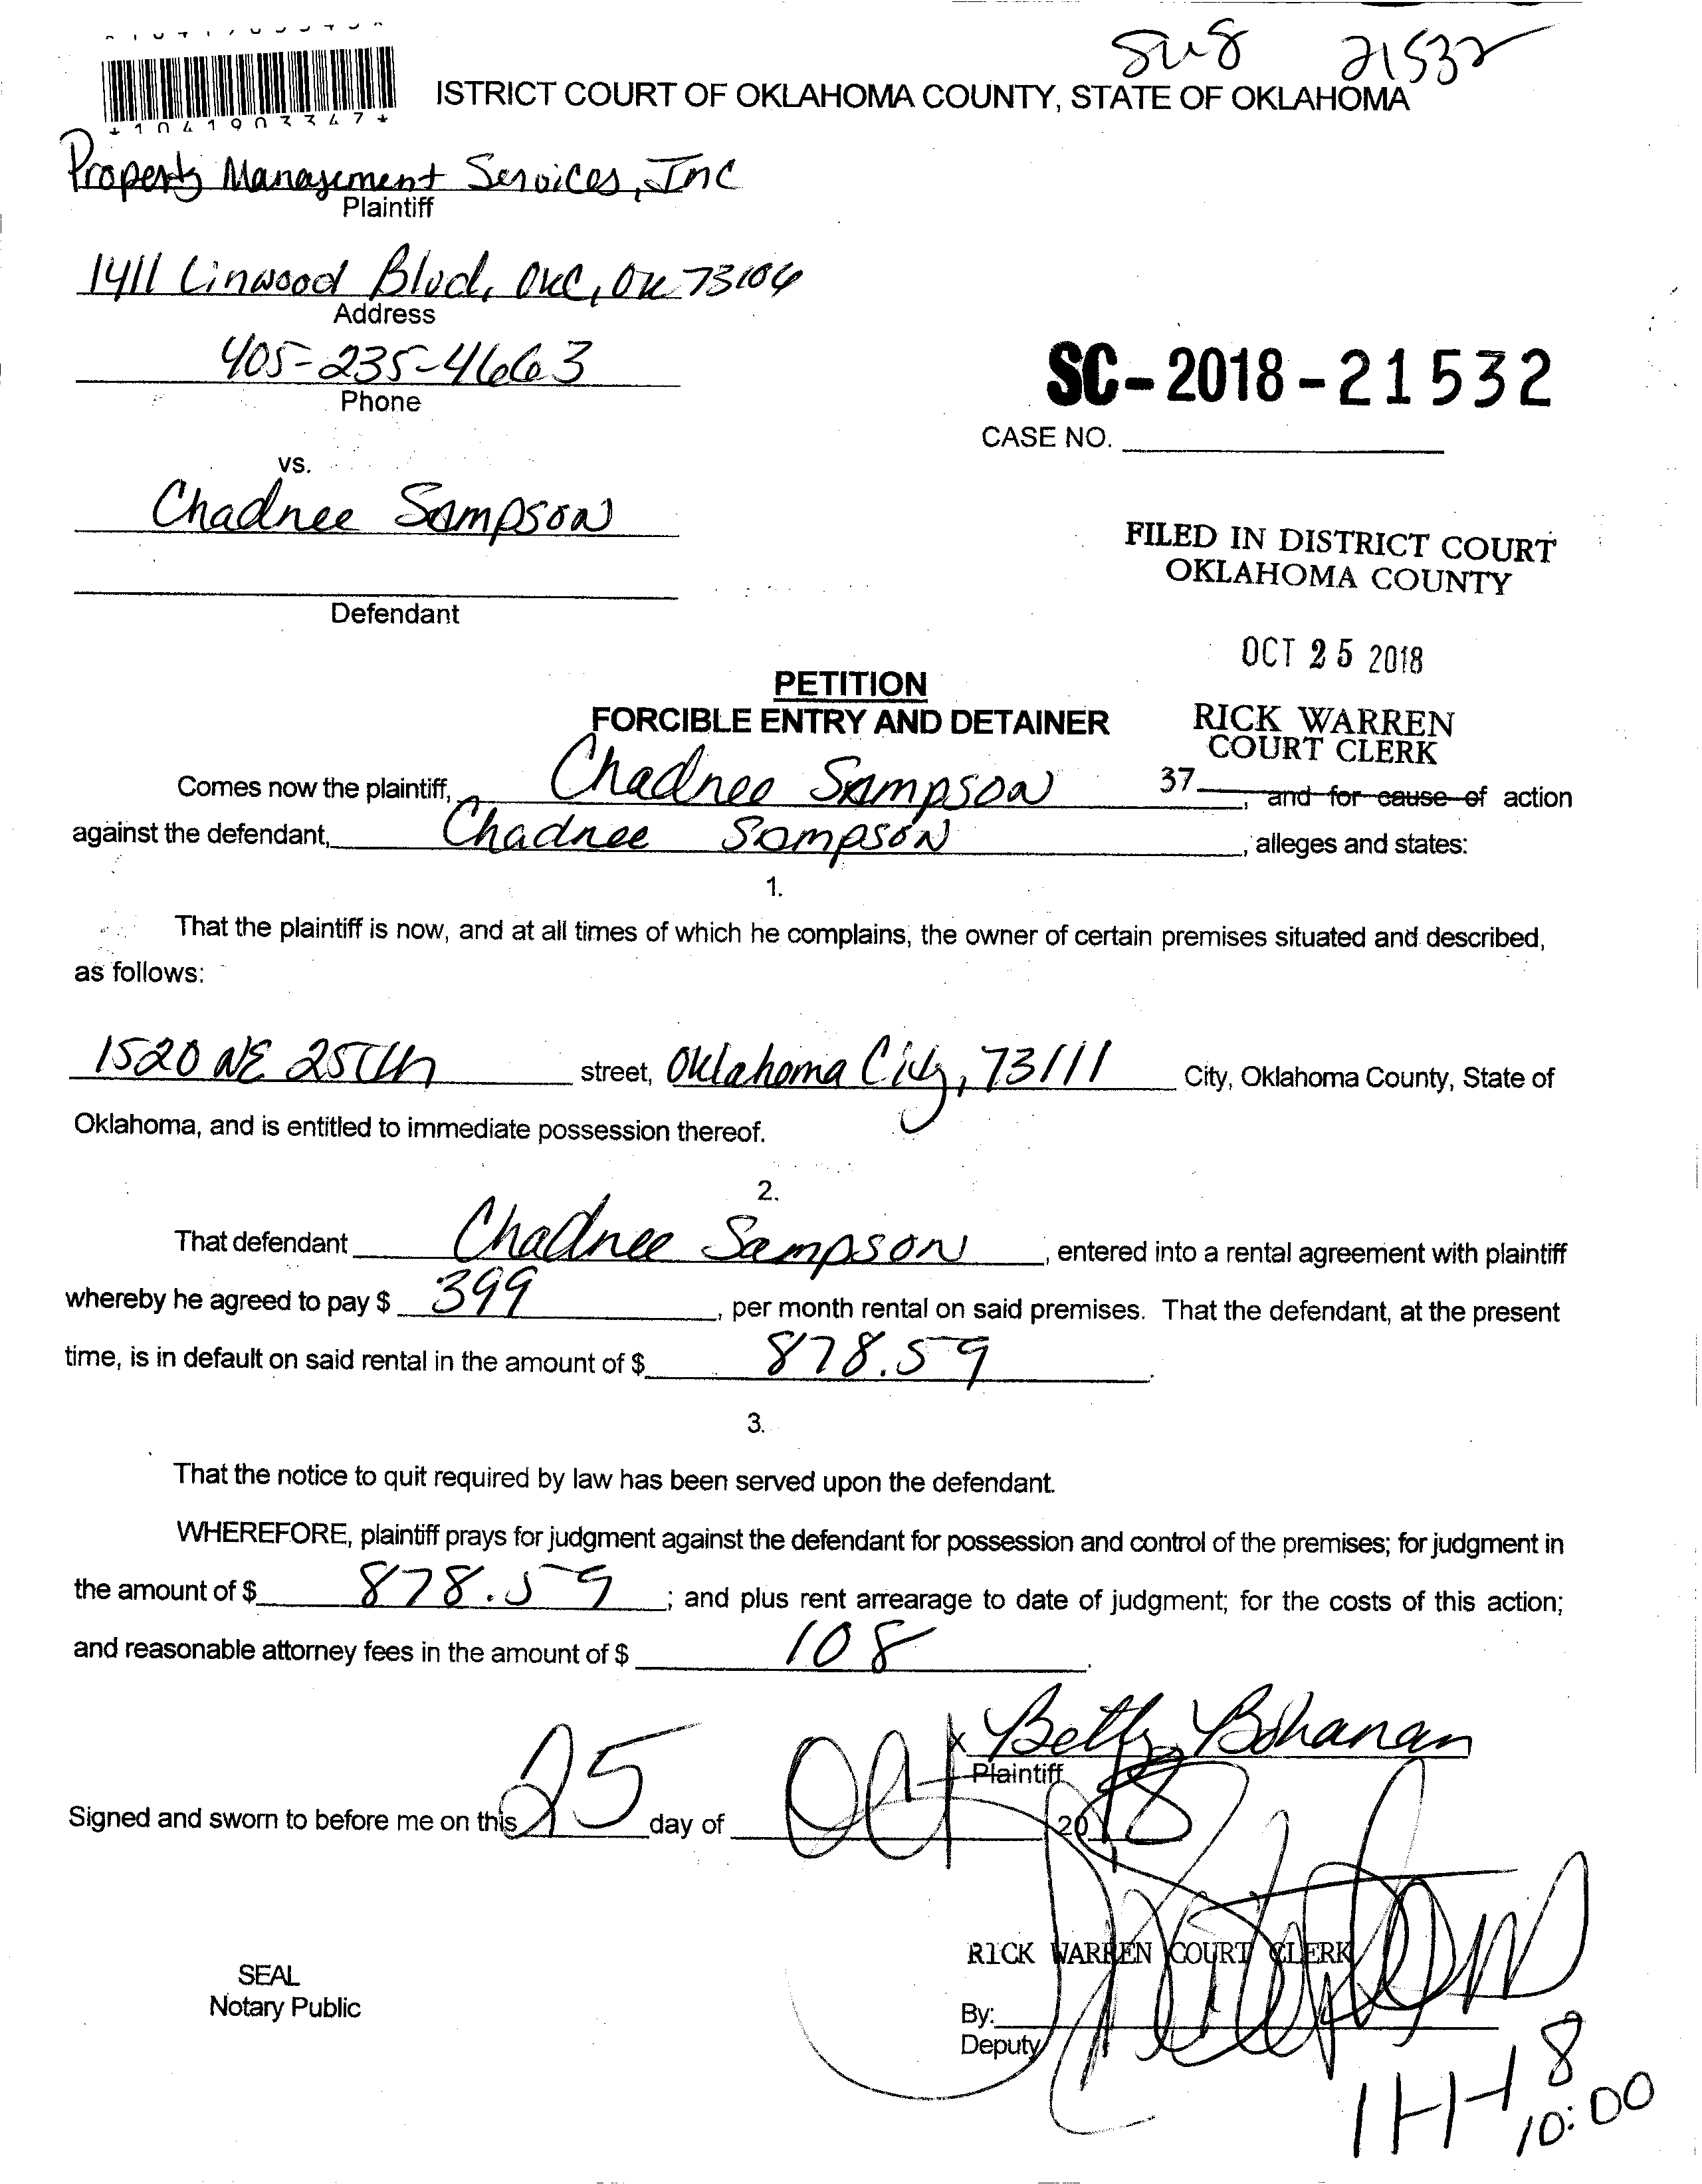 SC-18 21532
*1041903347*
ISTRICT COURT OF OKLAHOMA COUNTY, STATE OF OKLAHOMA
Property Management Services, Inc
Plaintiff
1411 Linwood Blvd, OKC, OK 73106
Address
405-235-4663
Phone
SC-2018-21532
CASE NO.
vs.
Chadnee Sampson
FILED IN DISTRICT COURT
OKLAHOMA COUNTY
Defendant
OCT 25 2018
PETITION
FORCIBLE ENTRY AND DETAINER
RICK WARREN
COURT CLERK
37
Comes now the plaintiff, Chadnee Sampson, and for cause of action
against the defendant, Chadnee Sampson, alleges and states:
1.
That the plaintiff is now, and at all times of which he complains, the owner of certain premises situated and described,
as follows:
1520 NE 25th street, Oklahoma City, 73111 City, Oklahoma County, State of
Oklahoma, and is entitled to immediate possession thereof.
2.
That defendant Chadnee Sampson, entered into a rental agreement with plaintiff
whereby he agreed to pay $ 399, per month rental on said premises. That the defendant, at the present
time, is in default on said rental in the amount of $ 878.59.
3.
That the notice to quit required by law has been served upon the defendant.
WHEREFORE, plaintiff prays for judgment against the defendant for possession and control of the premises; for judgment in
the amount of $ 878.59; and plus rent arrearage to date of judgment; for the costs of this action;
and reasonable attorney fees in the amount of $ 108.
x Betty Bohanan
Plaintiff
Signed and sworn to before me on this 25 day of Oct 2018
RICK WARREN COURT CLERK
SEAL
Notary Public
By:
Deputy
11-1-18
10:00